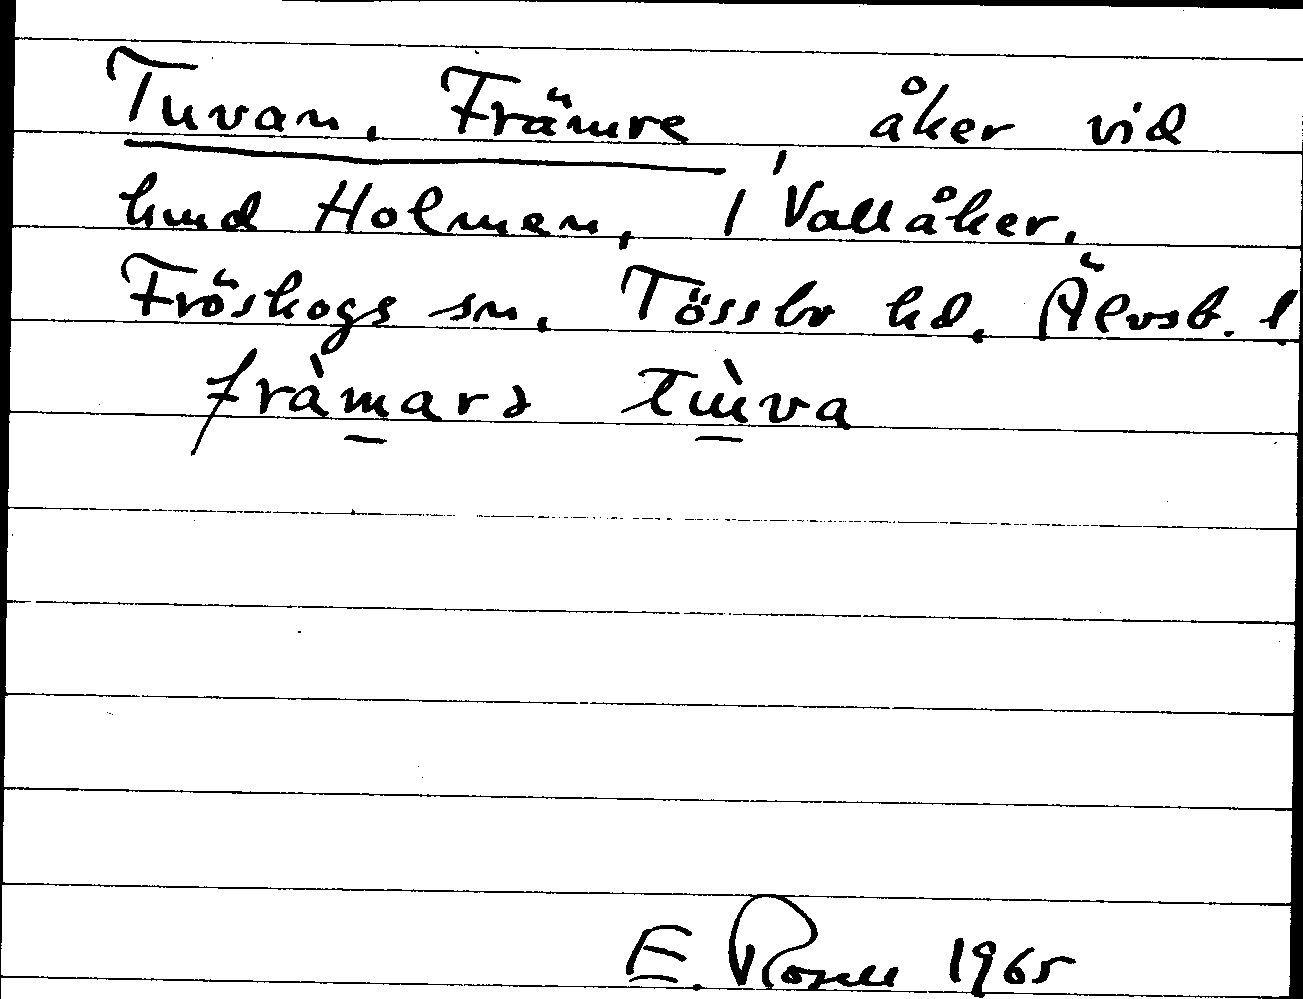 Tuvan, Främre, åker vid
hmd Holmen, 1 Vallåker.
Fröskogs sn. Tössbo hd. Älvsb. l.
fràmarə tɯ̀va
E. Rosell 1965